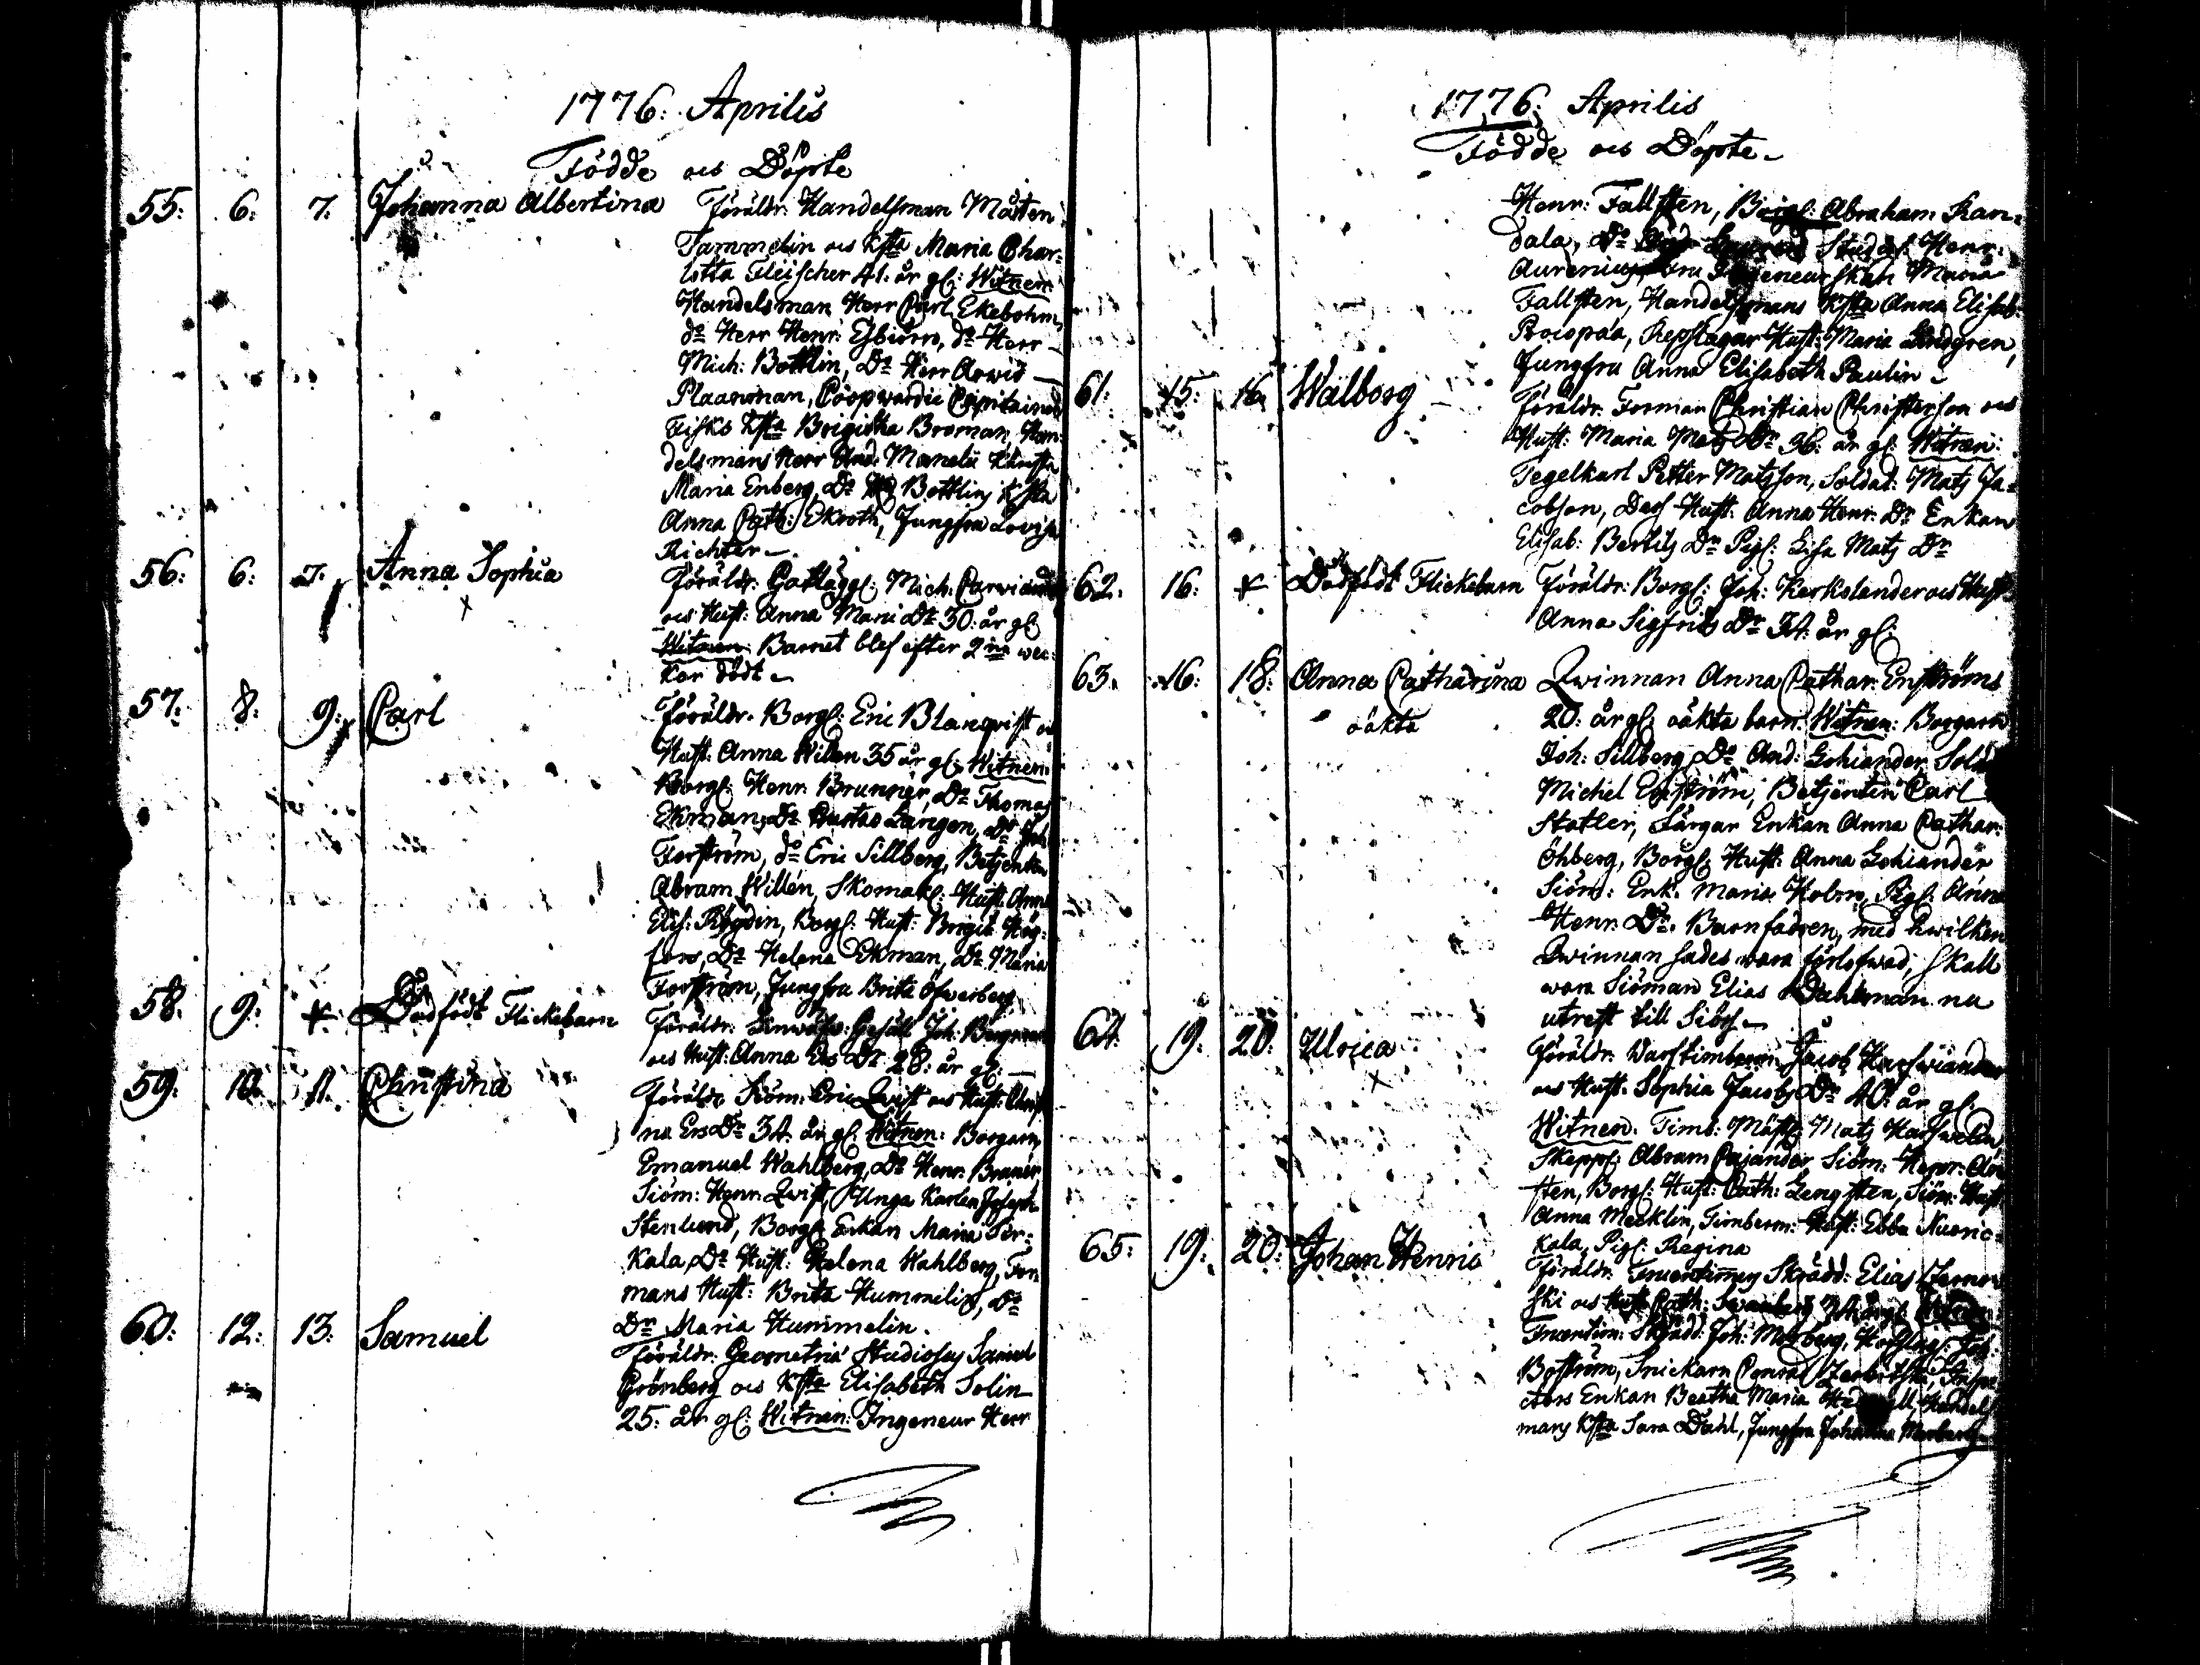 1776: Aprilis
Födde och Döpte
55: 6: 7: Johanna Albertina Föräldr: Handelsman Mårten
Tammelin och K:sta Maria Char-
lotta Fleischer 41: år gl: Witnen:
Handelsman Herr Carl Ekebohm,
do Herr Henr: Esbiörn, do Herr
Mich: Bottlin, Do Herr Arwid
Plaanman, Coopvardie Capitainen
K:sta Brigitha Broman, Han-
delsmans Herr And: Manelii K:sta
Maria Enberg, Do Bottlins K:sta
Anna Cath: Ekroth, Jungfru Lovisa
Richter
56: 6: 7: Anna Sophia Föräldr: Mich:
och Hust: Anna Mari Dr 30: år gl:
Witnen: Barnet blef efter 2ne wec-
kor dödt
57: 8: 9: Carl Föräldr: Borgl: Eric Blanqvist och
Hust: Anna Wilen 35 år gl: Witnen:
Borgl: Henr: Brunner, Do Thomas
Ekman, Do Gustav Langen, Do Joh:
Forström, do Eric Sillberg, Betjenten
Abram Willén, Skomak: Hust: Anna
Elis: Rygdin, Borgl: Hust: Brigit: Hög-
fors, Do Helena Ekman, Do Maria
Forström, Jungfru Brita Öfwerberg
58: 9: + Dödfödt Flickebarn Föräldr: Gesäll Joh: Bergman
och Hust: Anna Ers Dr 28: år gl:
59: 10: 11: Christina Föräldr: Siöm: Eric Qvist och Hust: Christi-
na Ers Dr 34: år gl: Witnen: Borgarn
Emanuel Wahlberg, Do Henr: Bruner
Siöm: Henr: Qvist, Unga Karlen Joseph
Stenlund, Borgl: Enkan Maria Per-
kala, Do Hust: Helena Wahlberg, For-
mans Hust: Brita Hummelin, Do
Dr Maria Hummelin.
60: 12: 13: Samuel Föräldr: Geometriæ Studiosus Samuel
Grönberg och K:sta Elisabeth Solin
25: år gl: Witnen: Ingeneur Herr
1776: Aprilis
Födde och Döpte
Henr: Fallsten, Borgl: Abraham Kan-
dala, Do Stud: Henr:
Aurenius, Fru Ingeneurskan Maria
Fallsten, Handelsmans K:sta Anna Elisab:
Procopæa, Repslagar Hust: Maria Lindgren,
Jungfru Anna Elisabeth Paulin
61: 15: 16: Walborg Föräldr: Forman Christian Christerson och
Hust: Maria Mats Dr 36: år gl: Witnen:
Tegelkarl Petter Matsson, Soldat: Mats Ja-
cobson, Dess Hust: Anna Henr: Dr Enkan
Elisab: Bertils Dr Pigl: Lisa Mats Dr
62: 16: + Dödfödt Flickebarn Föräldr: Borgl: Joh: Karkolander och Hust:
Anna Sigfrids Dr 34: år gl:
63: 16: 18: Anna Catharina Qwinnan Anna Cathar: Enströms
oäkta 20: år gl: oäkta barn. Witnen: Borgarn
Joh: Sillberg, Do And: Gohiander, Sold:
Michel Enström, Betjenten Carl
Statler, Färgar Enkan Anna Cathar:
Öhberg, Borgl: Hust: Anna Gohiander
Siöm: Enk: Maria Holm, Pigl: Anna
Henr: Dr. Barnfadren, med hwilken
Qwinnan sades wara förlofwad, skall
wara Siöman Elias Dahlman nu
utrest till Siös
64: 19: 20: Ulrica Föräldr: Jacob
och Hust: Sophia Jacobs Dr 40: år gl:
Witnen: Timb: Mäst: Mats
Skeppl: Abram Pajander, Siöm: Henr:
sten, Borgl: Hust: Cath: Lengsten, Siöm: Hust:
Anna Mecklin, Timberm: Hust: Ebba
kala, Pigl: Regina
65: 19: 20: Johan Henric Föräldr: Skrädd: Elias
ski och Hust: Cath: 34 år gl: Witnen:
Skrädd: Joh: Marberg, Joh:
Boström, Snickarn Conrad
ctors Enkan Beatha Maria Handels-
mans K:sta Sara Dahl, Jungfru Johanna Marberg